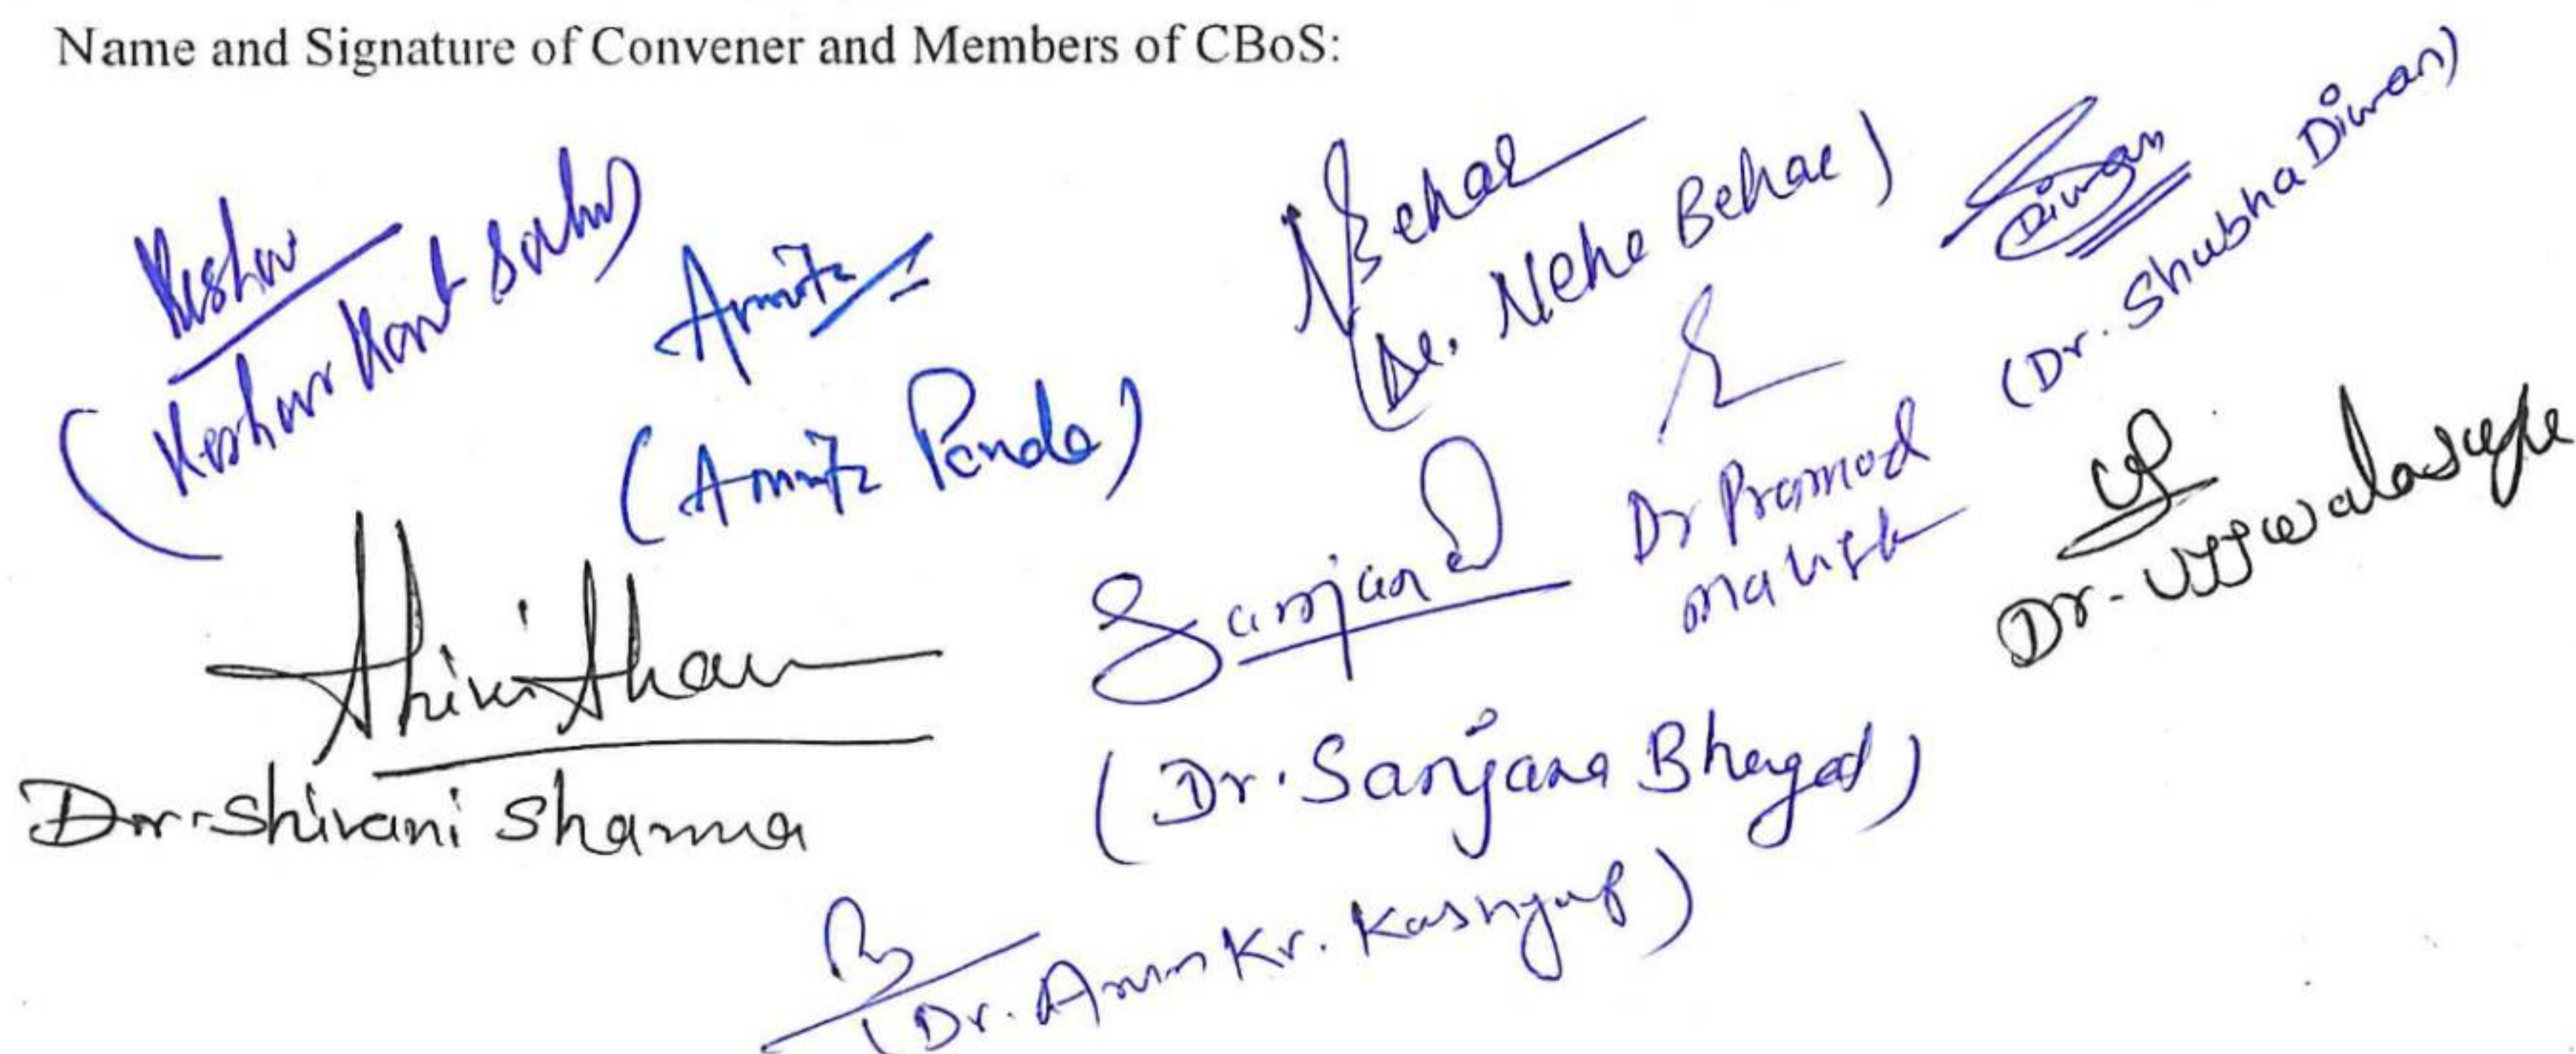 Name and Signature of Convener and Members of CBoS:
Keshav
(Keshav Kant Sahu)
Amita
(Amita Panda)
NBehar
(Dr. Neha Behar)
Diwan
(Dr. Shubha Diwan)
Dr Pramod
Mahish
Dr-Ujjwala Supe
Shivisham
Dr-Shivani Sharma
Sanjana
(Dr. Sanjana Bhagat)
(Dr. Arun Kr. Kashyap)